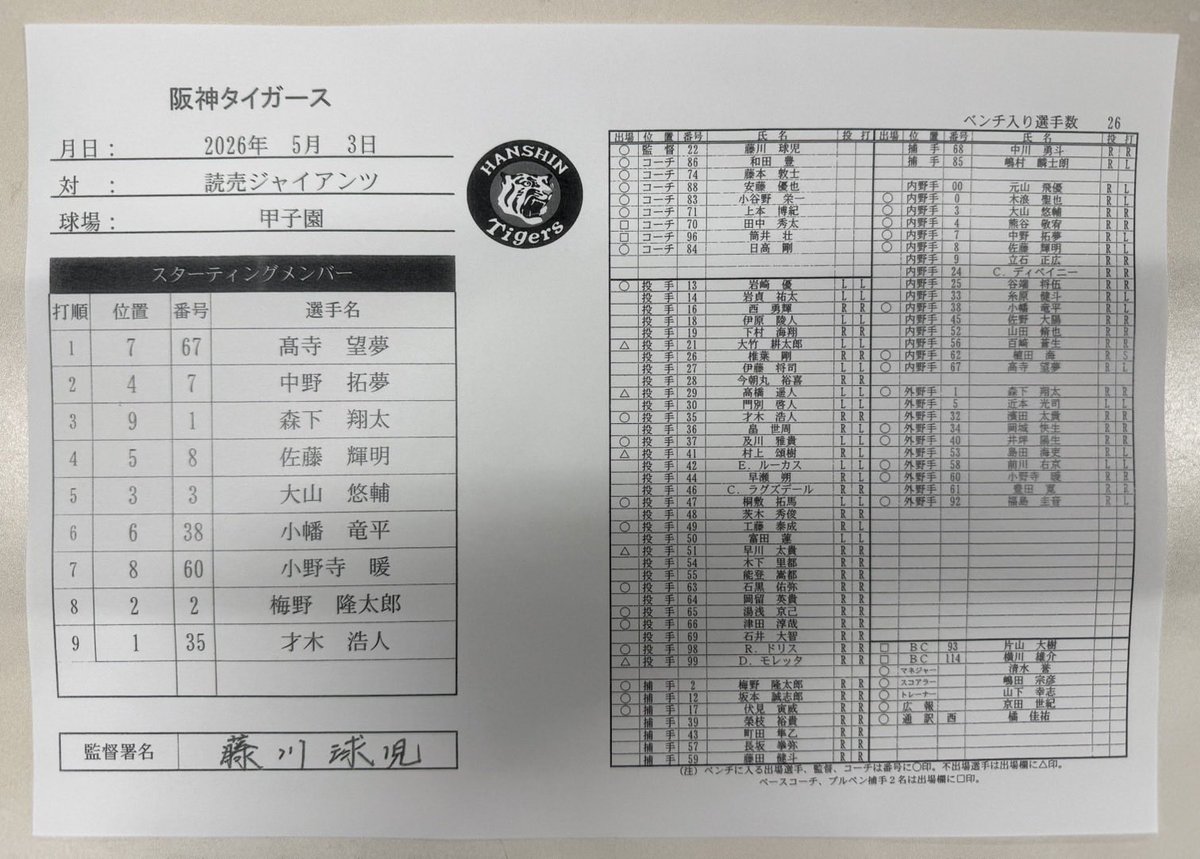 阪神タイガース
月日： 2026年 5月 3日
対 ： 読売ジャイアンツ
球場： 甲子園
HANSHIN
Tigers
スターティングメンバー
打順 位置 番号 選手名
1 7 67 髙寺 望夢
2 4 7 中野 拓夢
3 9 1 森下 翔太
4 5 8 佐藤 輝明
5 3 3 大山 悠輔
6 6 38 小幡 竜平
7 8 60 小野寺 暖
8 2 2 梅野 隆太郎
9 1 35 才木 浩人
監督署名 藤川球児
ベンチ入り選手数 26
出場 位置 番号 氏名 投 打
○ 監督 22 藤川 球児
○ コーチ 86 和田 豊
○ コーチ 74 藤本 敦士
○ コーチ 88 安藤 優也
○ コーチ 83 小谷野 栄一
○ コーチ 71 上本 博紀
□ コーチ 70 田中 秀太
□ コーチ 96 筒井 壮
○ コーチ 84 日高 剛
○ 投手 13 岩崎 優 L L
投手 14 岩貞 祐太 L L
投手 16 西 勇輝 R R
投手 18 伊原 陵人 L L
投手 19 下村 海翔 R R
△ 投手 21 大竹 耕太郎 L L
投手 26 椎葉 剛 R R
投手 27 伊藤 将司 L L
投手 28 今朝丸 裕喜 R R
△ 投手 29 髙橋 遥人 L L
投手 30 門別 啓人 L L
○ 投手 35 才木 浩人 R R
投手 36 畠 世周 R L
○ 投手 37 及川 雅貴 L L
△ 投手 41 村上 頌樹 R L
投手 42 E．ルーカス L L
投手 44 早瀬 朔 L L
投手 46 C．ラグズデール R R
○ 投手 47 桐敷 拓馬 L L
投手 48 茨木 秀俊 R R
○ 投手 49 工藤 泰成 R R
投手 50 富田 蓮 L L
△ 投手 51 早川 太貴 R R
投手 54 木下 里都 R R
投手 55 能登 嵩都 R R
○ 投手 63 石黒 佑弥 R R
投手 64 岡留 英貴 R R
○ 投手 65 湯浅 京己 R R
○ 投手 66 津田 淳哉 R R
投手 69 石井 大智 R R
○ 投手 98 R．ドリス R R
△ 投手 99 D．モレッタ R R
○ 捕手 2 梅野 隆太郎 R R
○ 捕手 12 坂本 誠志郎 R R
○ 捕手 17 伏見 寅威 R R
捕手 39 榮枝 裕貴 R R
捕手 43 町田 隼乙 R R
捕手 57 長坂 拳弥 R R
捕手 59 藤田 健斗 R R
出場 位置 番号 氏名 投 打
捕手 68 中川 勇斗 R R
捕手 85 嶋村 麟士朗 R L
内野手 00 元山 飛優 R L
○ 内野手 0 木浪 聖也 R L
○ 内野手 3 大山 悠輔 R R
○ 内野手 4 熊谷 敬宥 R R
○ 内野手 7 中野 拓夢 R L
○ 内野手 8 佐藤 輝明 R L
内野手 9 立石 正広 R R
内野手 24 C．ディベイニー R R
内野手 25 谷端 将伍 R R
内野手 33 糸原 健斗 R L
○ 内野手 38 小幡 竜平 R L
内野手 45 佐野 大陽 R R
内野手 52 山田 脩也 R R
内野手 56 百崎 蒼生 R R
○ 内野手 62 植田 海 R S
○ 内野手 67 髙寺 望夢 R L
○ 外野手 1 森下 翔太 R R
外野手 5 近本 光司 L L
外野手 32 濱田 太貴 R R
○ 外野手 34 岡城 快生 R R
○ 外野手 40 井坪 陽生 R R
外野手 53 島田 海吏 R L
○ 外野手 58 前川 右京 L L
○ 外野手 60 小野寺 暖 R R
外野手 61 豊田 寛 R R
○ 外野手 92 福島 圭音 R L
□ BC 93 片山 大樹
□ BC 114 横川 雄介
○ マネジャー 清水 誉
○ スコアラー 嶋田 宗彦
○ トレーナー 山下 幸志
○ 広報 京田 世紀
○ 通訳 西 橘 佳祐
（注）ベンチに入る出場選手、監督、コーチは番号に○印。不出場選手は出場欄に△印。
ベースコーチ、ブルペン捕手２名は出場欄に□印。